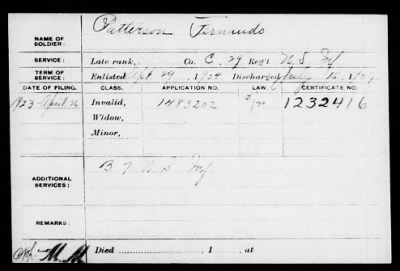 NAME OF SOLDIER: Patterson Fernando
SERVICE: Late rank, Co. C, 29 Reg't U S Inf
TERM OF SERVICE: Enlisted Sept 29, 1904 Discharged July 15, 190
DATE OF FILING. CLASS. APPLICATION NO. LAW. CERTIFICATE NO.
1923 April 26 Invalid, 1483202 1232416
Widow,
Minor,
ADDITIONAL SERVICES: B 7 U.S. Inf
REMARKS:
M.M. Died , 1 , at